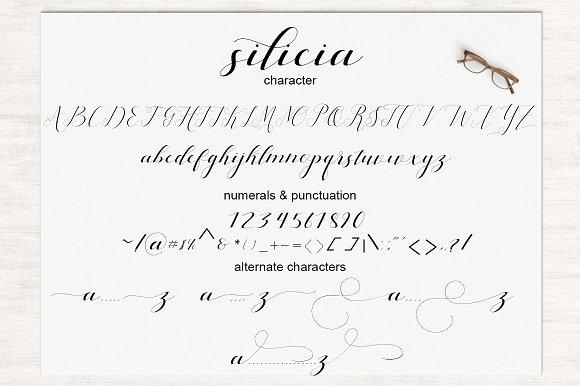 silicia
character
ABCDEFGHIJKLMNOPQRSTUVWXYZ
abcdefghijklmnopqrstuvwxyz
numerals & punctuation
1234561890
~!@#$%^&*()_+-=<>[]|\:;"'<>,.?/
alternate characters
a.....z a....z a....z
a..................z